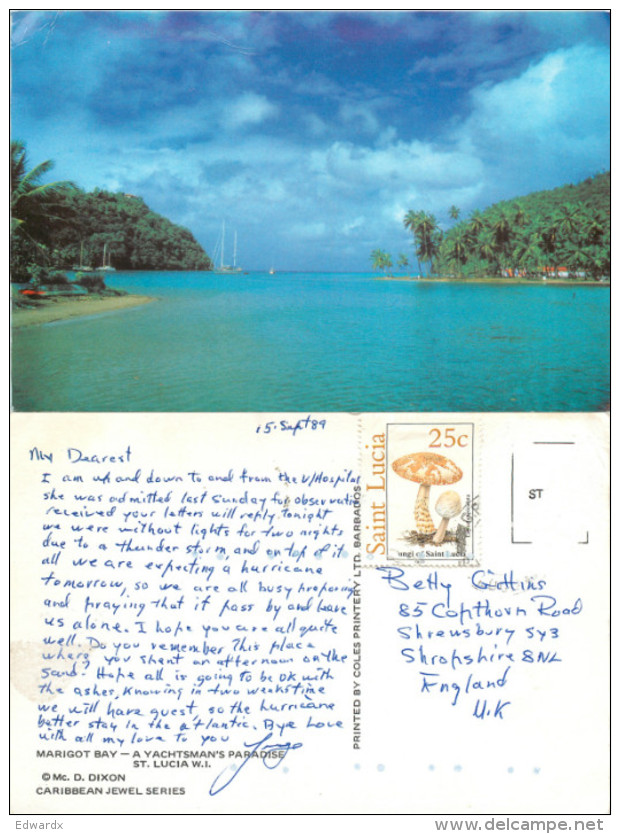 15. Sept 89
My Dearest
I am up and down to and from the V/Hospital
she was admitted last Sunday for observation
received your letters will reply tonight
we were without lights for two nights
due to a thunder storm, and on top of it
all we are expecting a hurricane
tomorrow, so we are all busy preparing
and praying that it pass by and leave
us alone. I hope you are all quite
well. Do you remember this place
where you spent an afternoon on the
sand. Hope all is going to be OK with
the asher, knowing in two weeks time
we will have guest so the hurricane
better stay in the atlantic. Bye Love
with all my love to you
MARIGOT BAY — A YACHTSMAN'S PARADISE
ST. LUCIA W.I.
© Mc. D. DIXON
CARIBBEAN JEWEL SERIES
PRINTED BY COLES PRINTERY LTD. BARBADOS
Saint Lucia
25c
Fungi of Saint Lucia
ST
Betty Gittins
85 Copthorn Road
Shrewsbury SY3
Shropshire 8NL
England
U.K
Edwardx
delcampe.net